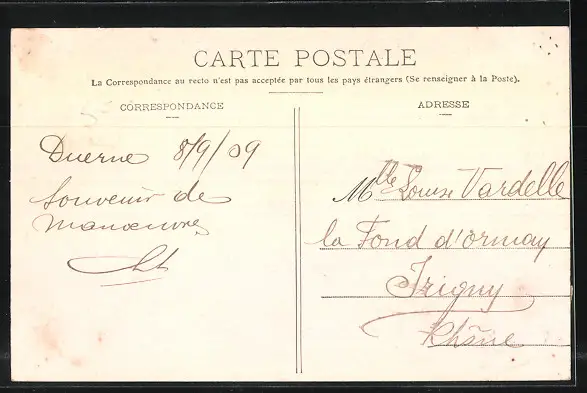 CARTE POSTALE
La Correspondance au recto n'est pas acceptée par tous les pays étrangers (Se renseigner à la Poste).
CORRESPONDANCE
Duerne 8/9/09
Souvenir de
manœuvres
ADRESSE
Mlle Louise Vardelle
la Fond d'ormay
Irigny
Rhône